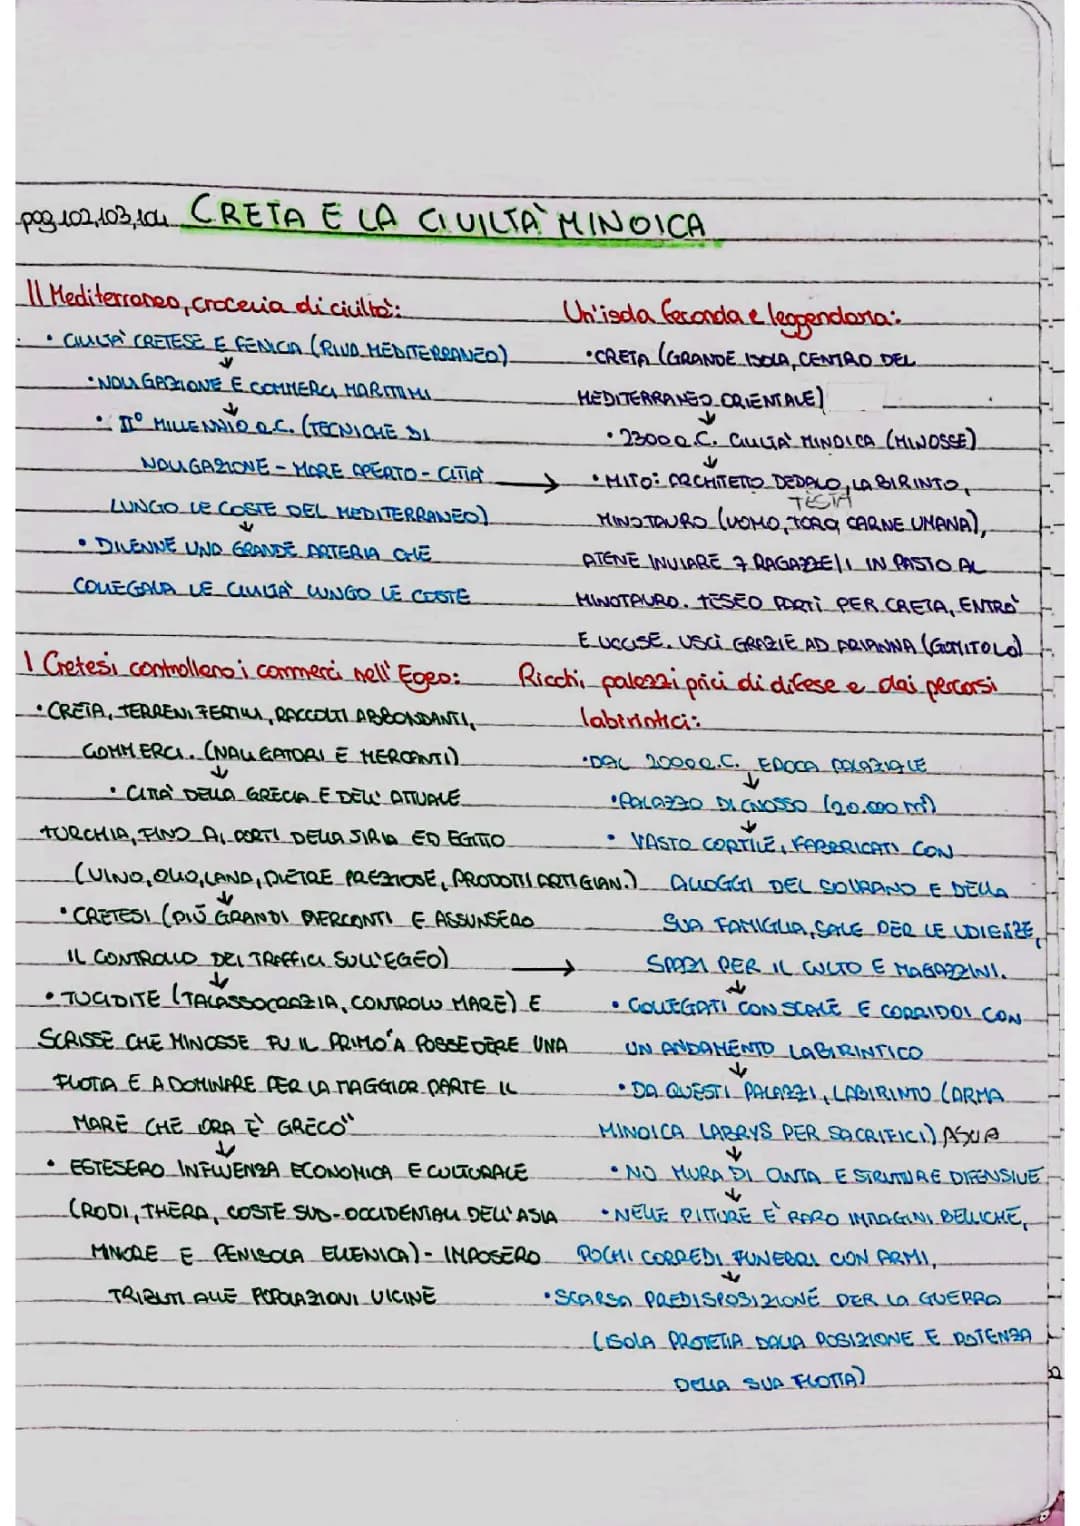 pag 102,103,104 CRETA E LA CIVILTÀ MINOICA
Il Mediterraneo, crocevia di civiltà:
• CIVILTÀ CRETESE E FENICIA (RIVA MEDITERRANEO)
↓
• NAVIGAZIONE E COMMERCI MARITTIMI
↓
• II° MILLENNIO a.C. (TECNICHE DI
NAVIGAZIONE - MARE APERTO - CITTÀ →
LUNGO LE COSTE DEL MEDITERRANEO)
↓
• DIVENNE UNA GRANDE ARTERIA CHE
COLLEGAVA LE CIVILTÀ LUNGO LE COSTE
I Cretesi controllano i commerci nell'Egeo:
• CRETA, TERRENI FERTILI, RACCOLTI ABBONDANTI,
COMMERCI. (NAVIGATORI E MERCANTI)
↓
• CITTÀ DELLA GRECIA E DELL'ATTUALE
TURCHIA, FINO AI PORTI DELLA SIRIA ED EGITTO
(VINO, OLIO, LANA, PIETRE PREZIOSE, PRODOTTI ARTIGIAN.)
↓
• CRETESI (PIÙ GRANDI MERCANTI E ASSUNSERO
IL CONTROLLO DEI TRAFFICI SULL'EGEO) →
↓
• TUCIDITE (TALASSOCRAZIA, CONTROLLO MARE) E
SCRISSE CHE MINOSSE FU IL PRIMO "A POSSEDERE UNA
FLOTTA E A DOMINARE PER LA MAGGIOR PARTE IL
MARE CHE ORA È GRECO"
↓
• ESTESERO INFLUENZA ECONOMICA E CULTURALE
(RODI, THERA, COSTE SUD-OCCIDENTALI DELL'ASIA
MINORE E PENISOLA ELLENICA) - IMPOSERO
TRIBUTI ALLE POPOLAZIONI VICINE
Un'isola feconda e leggendaria:
• CRETA (GRANDE ISOLA, CENTRO DEL
MEDITERRANEO ORIENTALE)
↓
• 2300 a.C. CIVILTÀ MINOICA (MINOSSE)
↓
• MITO: ARCHITETTO DEDALO, LABIRINTO,
TESTA
MINOTAURO (UOMO, TORO, CARNE UMANA),
ATENE INVIARE 7 RAGAZZE/I IN PASTO AL
MINOTAURO. TESEO PARTÌ PER CRETA, ENTRÒ
E UCCISE. USCÌ GRAZIE AD ARIANNA (GOMITOLO)
Ricchi palazzi prici di difese e dai percorsi
labirintici:
• DAL 2000 a.C. EPOCA PALAZIALE
↓
• PALAZZO DI CNOSSO (20.000 m²)
↓
• VASTO CORTILE, FABBRICATI CON
ALLOGGI DEL SOVRANO E DELLA
SUA FAMIGLIA, SALE PER LE UDIENZE,
SPAZI PER IL CULTO E MAGAZZINI.
↓
• COLLEGATI CON SCALE E CORRIDOI CON
UN ANDAMENTO LABIRINTICO
↓
• DA QUESTI PALAZZI, LABIRINTO (ARMA
MINOICA LABRYS PER SACRIFICI) ASCIA
↓
• NO MURA DI CINTA E STRUTTURE DIFENSIVE
↓
• NELLE PITTURE È RARO IMMAGINI BELLICHE,
POCHI CORREDI FUNEBRI CON ARMI,
↓
• SCARSA PREDISPOSIZIONE PER LA GUERRA
(ISOLA PROTETTA DALLA POSIZIONE E POTENZA
DELLA SUA FLOTTA)